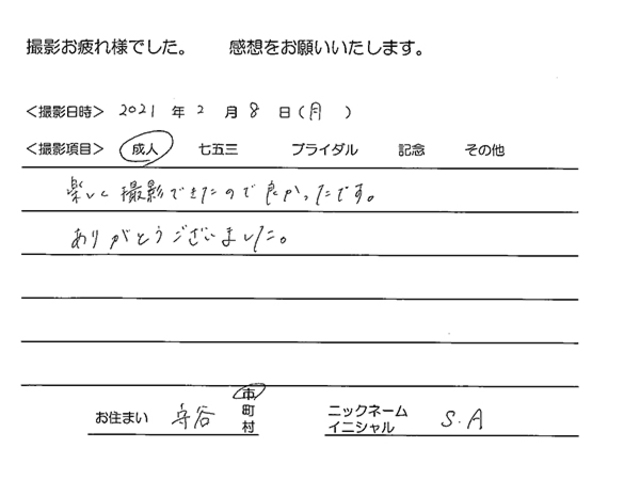 撮影お疲れ様でした。 感想をお願いいたします。
＜撮影日時＞ 2021 年 2 月 8 日（月）
＜撮影項目＞ 成人 七五三 ブライダル 記念 その他
楽しく撮影できたので良かったです。
ありがとうございました。
お住まい 守谷 市町村
ニックネーム イニシャル S.A